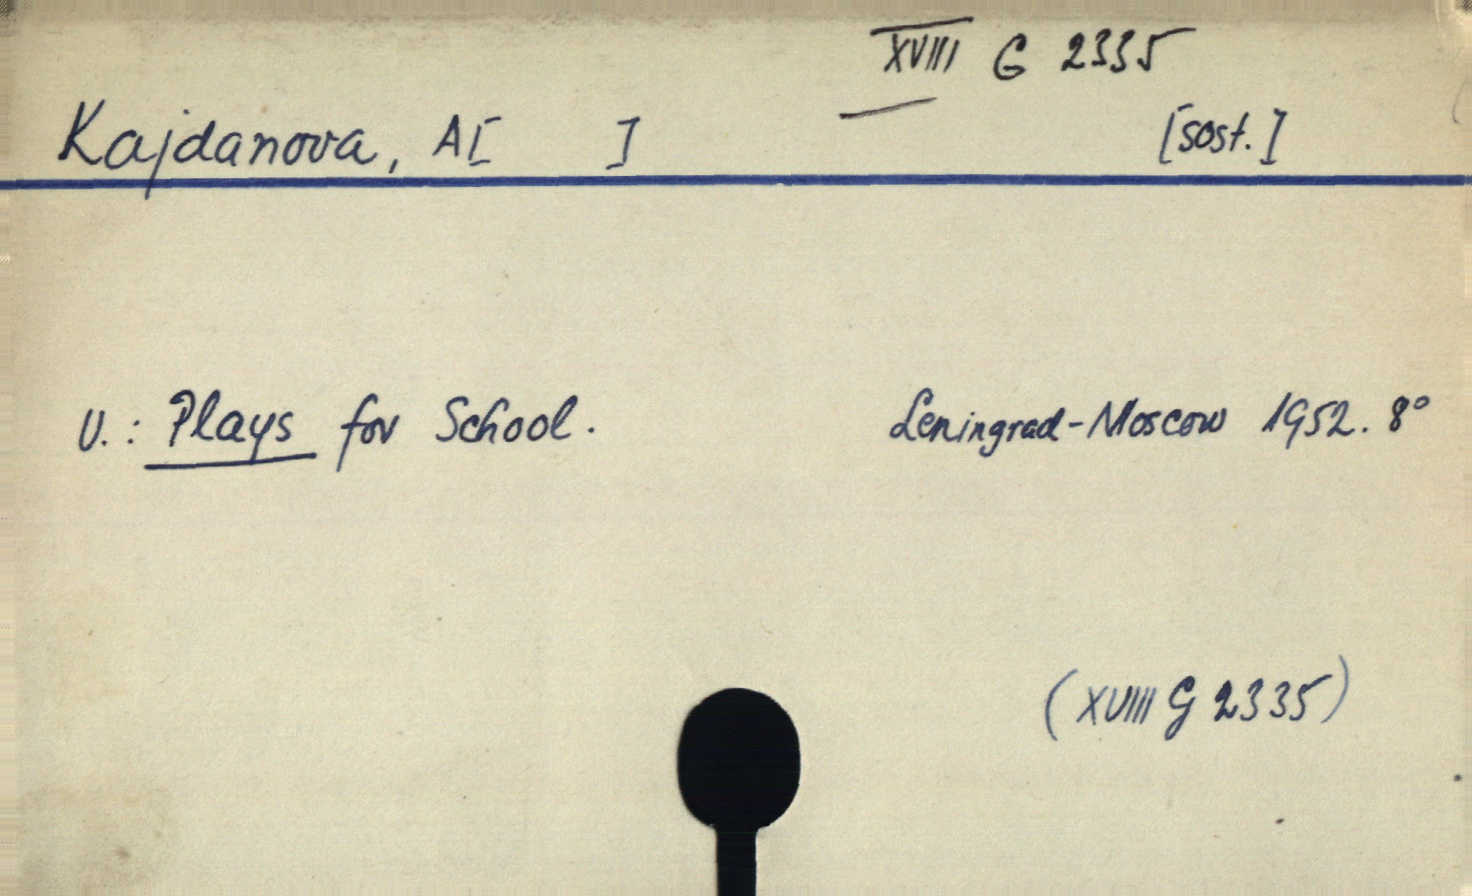 XVIII G 2335
Kajdanova, A[ ] [sost.]
U.: Plays for School. Leningrad-Moscow 1952. 8°
(XVIII G 2335)